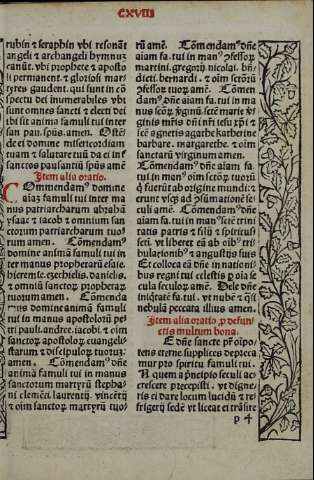 CXVIII
rubin ⁊ seraphin vbi resonāt
angeli ⁊ archangeli hymnuʒ
canūt: vbi prophete ⁊ aposto
li permanent. ⁊ gloriosi mar
tyres gaudent. qui sunt in cō
spectu dei inumerabiles vbi
sunt omnes sancti ⁊ electi dei
ibi sit anima famuli tui inter
san pau. spūs. amen. Ostē
de ei domine misericordiam
tuam ⁊ salutare tuū da ei inf
sanctos pausantiū spūs amē
Item alia oratio.
Commendamꝰ domine
aīaʒ famuli tui inter ma
nus patriarcharum abrahā
ysaac ⁊ iacob ⁊ omnium san
ctorum patriarcharum tuo
rum amen. Cōmendamꝰ
domine animā famuli tui in
ter manus prophetarū esaie.
hieremie. ezechielis. danielis.
⁊ omniū sanctoꝝ prophetaꝝ
tuorum amen. Cōmenda
mꝰ domine animā famuli
tui in manus apostoloꝝ pe
tri pauli. andree. iacobi. ⁊ oim
sanctoꝝ apostoloꝝ. euangeli
starum ⁊ discipuloꝝ tuoruʒ.
amen. Cōmendamꝰ dñe
animā famuli tui in manus
sanctorum martyrū stepha
ni clemēti. laurentij. vincētij
⁊ oim sanctoꝝ martyrū tuo
rū amē. Cōmendamꝰ dñe
aiam fa. tui in manꝰ ꝯfessoꝝ
martini. gregorij nicolai. bñ
dicti. bernardi. ⁊ oim sctōrū
ꝯfessoꝝ tuoꝝ amē. Cōmen
damꝰ dñe aiam fa. tui in ma
nus scōꝝ ꝟginū. sctē marie vir
ginis mr̄is dñi nr̄i iesu xp̄i ⁊
scē agnetis agathe katherine
barbare. margarethe. ⁊ oim
sanctarū virginum amen.
Cōmendamꝰ dñe aiam fa.
tui in manꝰ oim sctōꝝ ⁊ tuorū
q̄ fuerūt ab origine mundi: ⁊
erunt vsqꝫ ad ꝯsumationē se
culi amē. Cōmendamꝰ dñe
aiam fa. tui in manꝰ sctē trini
tatis patris ⁊ filij ⁊ spirituss
scti. vt liberet eā ab oibꝰ tri
bulationibꝰ ⁊ angustijs suis
Et colloca eā dñe in nationi
bus regni tui celestis ꝑ oīa se
cula seculoꝝ amē. Dele dñe
iniqtatē fa. tui. vt nubē ⁊ q̄si
nebulā peccata illius amen.
Item alia oratio ꝓ defun
ctis multum bona.
TE dñe sancte pr̄ oīpo
tens eterne supplices depreca
mur pro spiritu famuli tui.
N quem a p̄ncipio seculi ac
crescere precepisti. vt digne
ris ei dare locum lucidū ⁊ re
frigerij sedē vt liceat ei trāsire
p 4